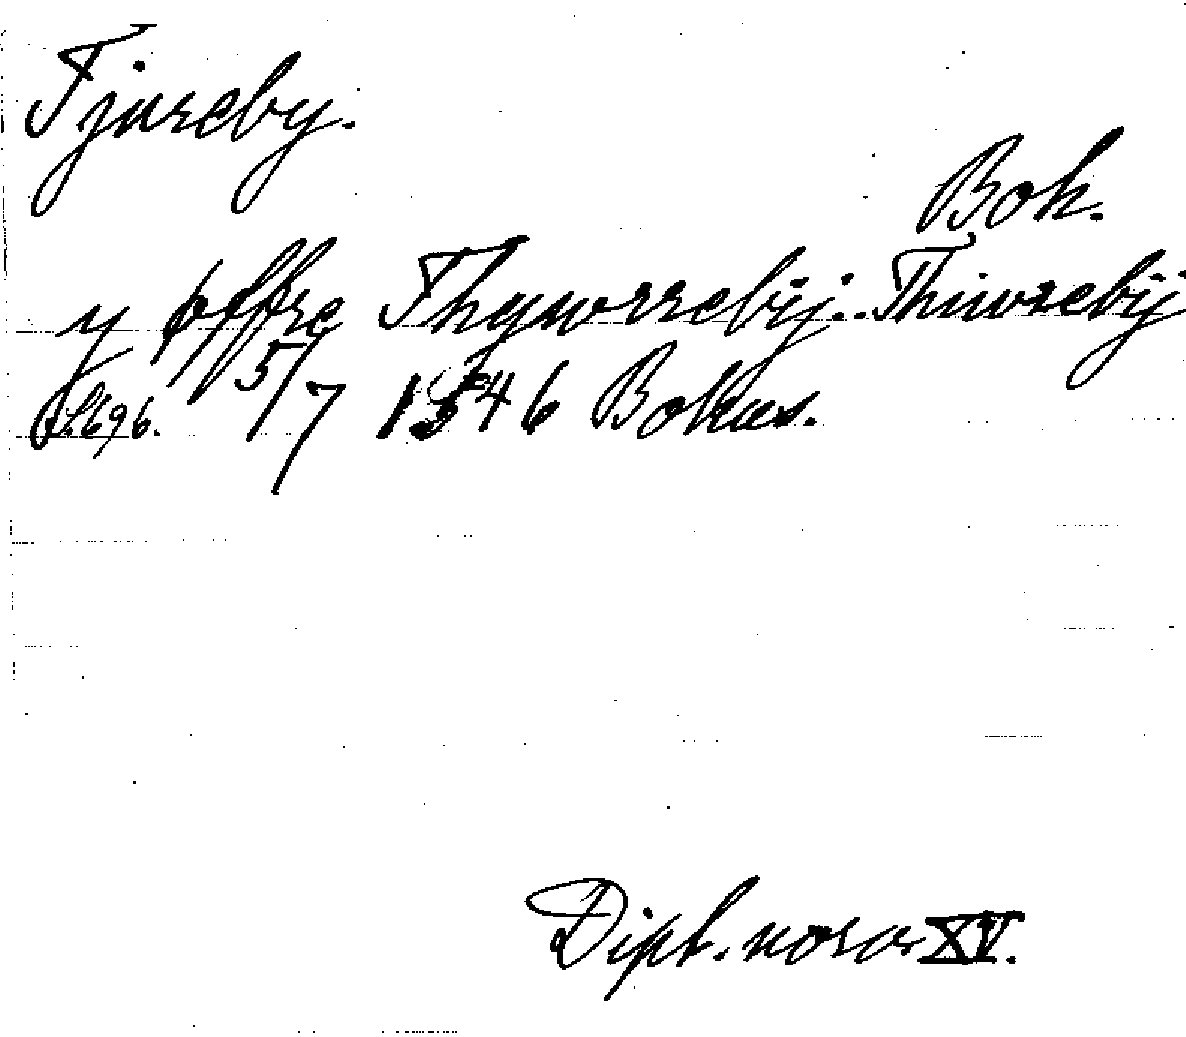 Tjureby.
Boh.
y øffre Thywrrebÿ. Thiwrebÿ
S. 696. 5/7 1546 Bohus.
Dipl. norv. XV.